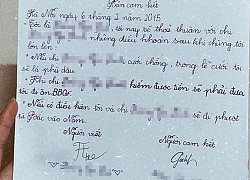 Bản cam kết
Hà Nội ngày 6 tháng 2 năm 2015.
- Tôi là , tôi nay sẽ thoả thuận với chị
những điều khoản sau khi chúng tôi
lớn lên.
- Nếu chị cưới chồng, trong lễ cưới tôi
sẽ là phù dâu.
- Khi chị kiếm được tiền sẽ phải đưa
tôi đi ăn BBQ.
- Nếu có điều kiện tôi và chị sẽ đi phượt
từ Bắc vào Nam.
Người viết Người cam kết